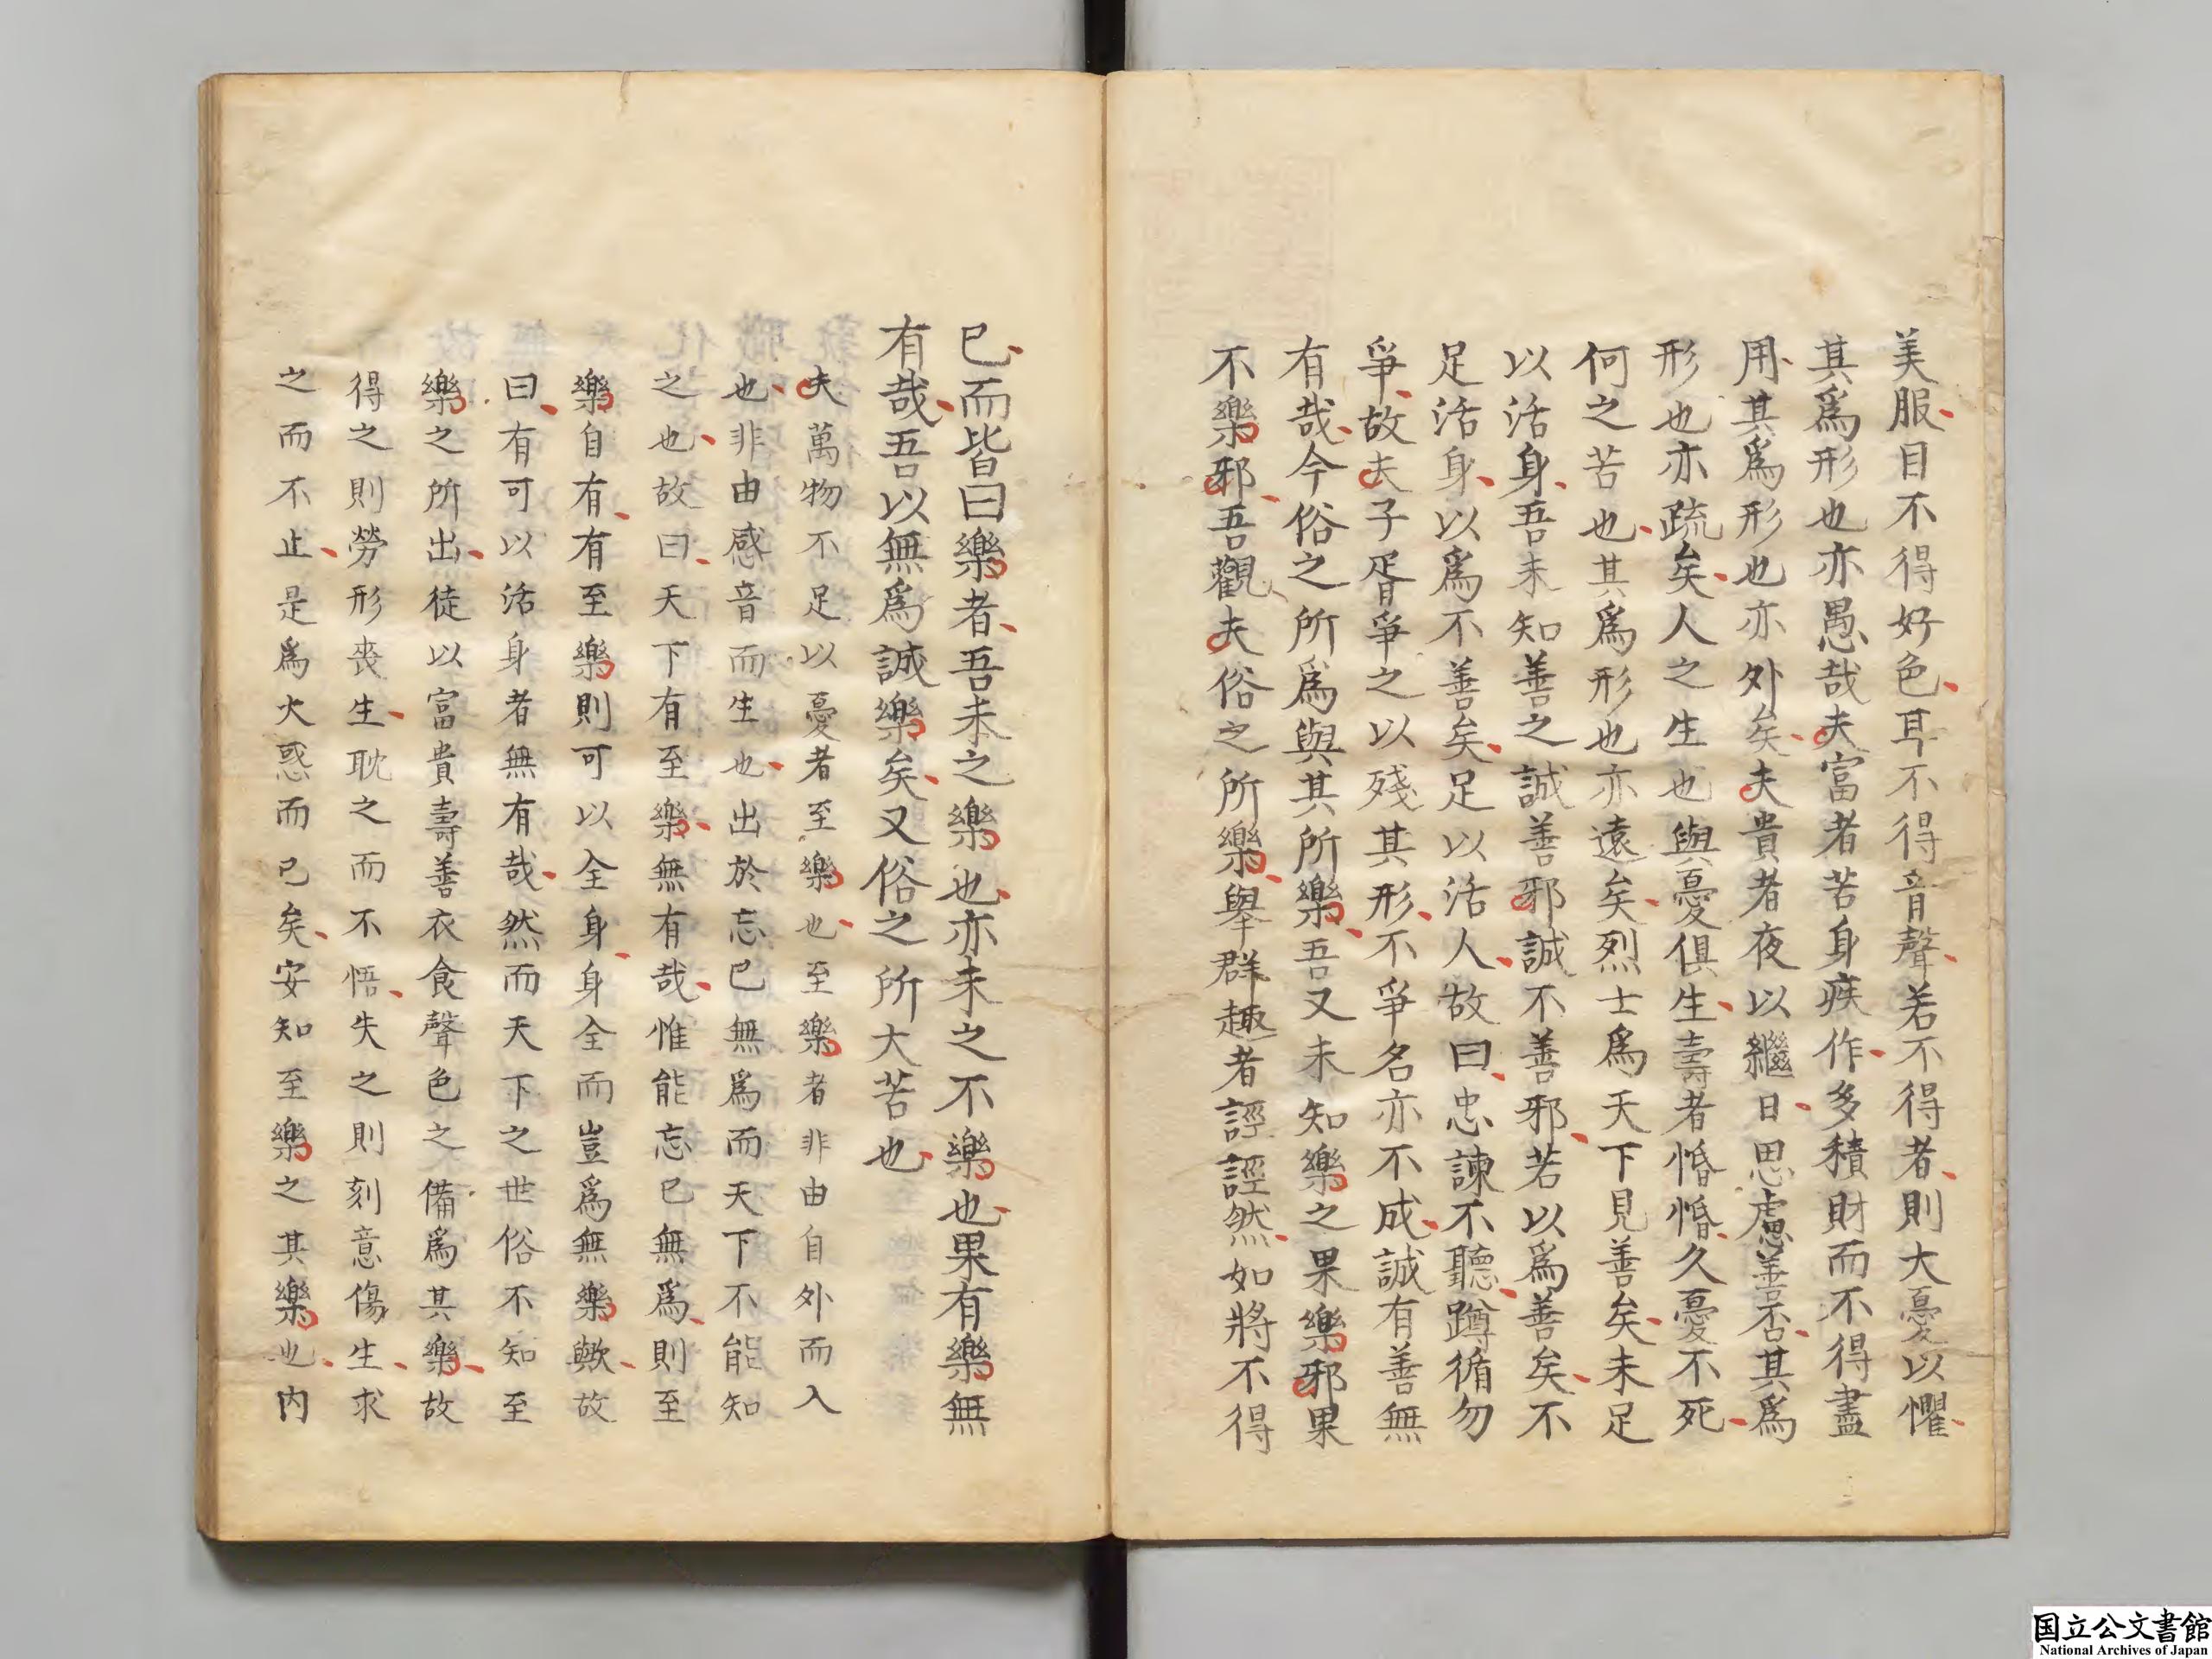 美服目不得好色耳不得音聲若不得者則大憂以懼
其爲形也亦愚哉夫富者苦身疾作多積財而不得盡
用其爲形也亦外矣夫貴者夜以繼日思慮善否其爲
形也亦疏矣人之生也與憂俱生壽者惛惛久憂不死
何之苦也其爲形也亦遠矣烈士爲天下見善矣未足
以活身吾未知善之誠善邪誠不善邪若以爲善矣不
足活身以爲不善矣足以活人故曰忠諫不聽蹲循勿
爭故夫子胥爭之以殘其形不爭名亦不成誠有善無
有哉今俗之所爲與其所樂吾又未知樂之果樂邪果
不樂邪吾觀夫俗之所樂舉群趣者誙誙然如將不得
已而皆曰樂者吾未之樂也亦未之不樂也果有樂無
有哉吾以無爲誠樂矣又俗之所大苦也
夫萬物不足以憂者至樂也至樂者非由自外而入
也非由感音而生也出於忘已無爲而天下不能知
之也故曰天下有至樂無有哉惟能忘已無爲則至
樂自有有至樂則可以全身身全而豈爲無樂歟故
曰有可以活身者無有哉然而天下之世俗不知至
樂之所出徒以富貴壽善衣食聲色之備爲其樂故
得之則勞形喪生耽之而不悟失之則刻意傷生求
之而不止是爲大惑而已矣安知至樂之其樂也内
国立公文書館
National Archives of Japan